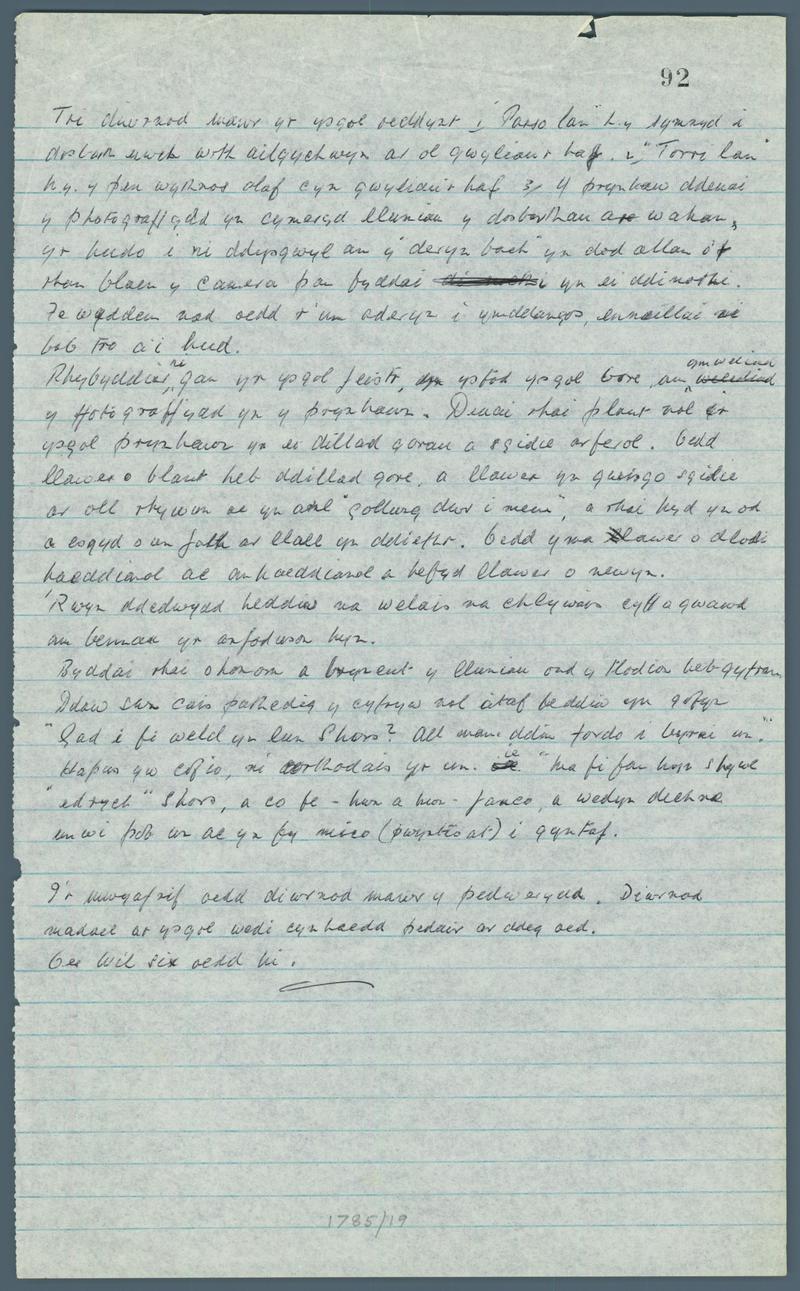 92
Tri diwrnod mawr yr ysgol oeddynt 1, "Passo lan" h.y symnyd i
dosbarth uwch wrth ailgychwyn ar ol gwyliau'r haf. 2, "Torri lan"
h.y. y pen wythnos olaf cyn gwyliau'r haf 3, Y prynhaw ddeuai
y photograffydd yn cymeryd lluniau y dosbarthau ar wahan,
yr hudo i ni ddysgwyl am y "deryn bach" yn dod allan o'r
rhan blaen y camera pan fyddai yn ei ddinoethi.
Fe wyddem nad oedd r'un aderyn i ymddangos, ennillai
bob tro a'i hud.
Rhybyddies ni gan yr ysgol feistr, ystod ysgol bore, am ymweliad
y ffotograffydd yn y prynhawn. Deuai rhai plant nol i'r
ysgol prynhawn yn ei dillad gorau a sgidie arferol. Oedd
llawer o blant heb ddillad gore, a llawer yn gwisgo sgidie
ar oll rhywun ac yn aml "gollwng dwr i mewn", a rhai hyd yn od
a esgyd o un fath ar llall yn ddiethr. Oedd yma llawer o dlodi
haeddianol ac anhaeddianol a hefyd llawer o newyn.
'Rwyn ddedwydd heddiw na welais na chlywais cyff a gwawd
am bennau yr anfodwson hyn.
Byddai rhai ohonom a brynent y lluniau ond y tlodion heb gyfran
Ddaw swn cais pathedig y cyfryw nol ataf heddiw yn gofyn
"Gad i fi weld yn llun Shors? All mam ddim fordo i byrni un."
Hapus yw cofio, ni wrthodais yr un. ie "ma fi fan hyn shgwl
"edrych" Shors, a co fe - hwn a hon - fanco, a wedyn dechre
enwi pob un ac yn fy nisco (pwyntio at) i gyntaf.
I'r mwyafrif oedd diwrnod mawr y pedwerydd. Diwrnod
madael ar ysgol wedi cyrhaedd pedair ar ddeg oed.
Oes Wil six oedd hi.
1785/19